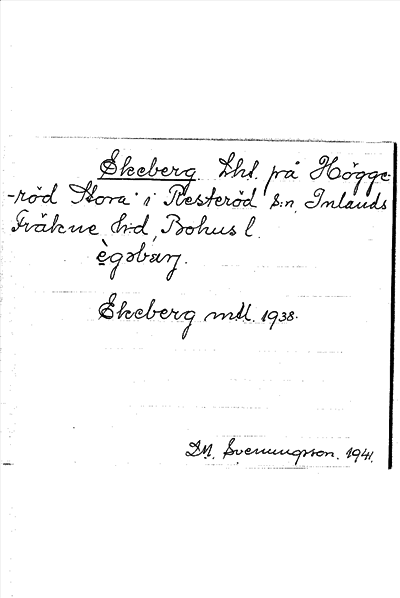 Ekeberg. Lht. på Högge-
-röd Stora i Resteröd s:n, Inlands
Fräkne hd, Bohus l.
ègəbærj.
Ekeberg mtl. 1938.
D.M. Svenungsson. 1941.